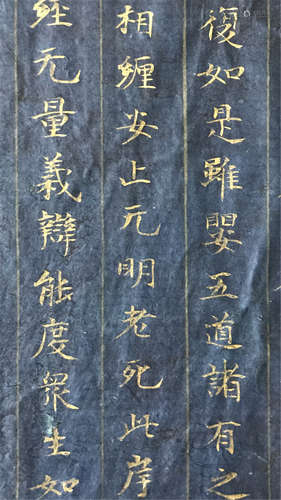 復如是雖嬰五道諸有之
相纏安止无明老死此岸
經无量義辯能度衆生如